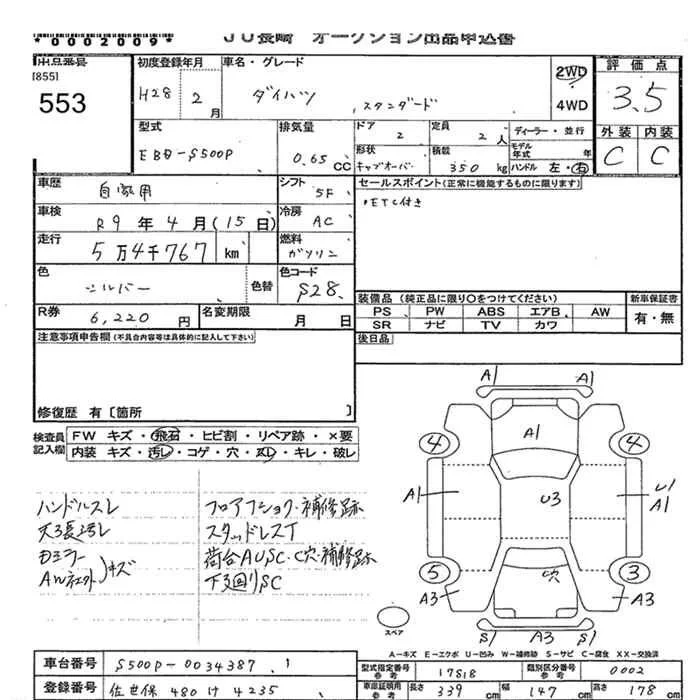 *0002009*
JU長崎 オークション出品申込書
出品番号
[855]
553
初度登録年月
H28 2 月
車名・グレード
ダイハツ スタンダード
2WD
4WD
評価点
3.5
外装 内装
C C
型式
EBD-S500P
排気量
0.65 CC
ドア
2
定員
2 人
ディーラー・並行
モデル年式 年
形状
キャブオーバー
積載
350 kg
ハンドル 左・右
車歴
自家用
シフト
5F
セールスポイント(正常に機能するものに限ります)
・ETC付き
車検
R9年4月(15日)
冷房
AC
走行
5万4千767 km
燃料
ガソリン
色
シルバー
色替
色コード
S28
装備品(純正品に限り○をつけてください)
PS PW ABS エアB AW
SR ナビ TV カワ
新車保証書
有・無
R券
6,220 円
名変期限
月 日
後日品
注意事項申告欄(不具合内容等は具体的に記入して下さい)
修復歴 有[箇所 ]
検査員記入欄
FW キズ・飛石・ヒビ割・リペア跡・×要
内装 キズ・汚し・コゲ・穴・スレ・キレ・破レ
ハンドルスレ
天張汚レ
Dミラー
フロアフショク・補修跡
スタッドレスT
荷台AUSC・C穴・補修跡
下回りSC
キズ
A1 A1
A1
4 4
A1 U3 U1
A1
5 3
A3 C穴 A3
S1 A3 S1
スペア
A-キズ E-エクボ U-凹み W-補修跡 S-サビ C-腐食 XX-交換済
車台番号
S500P-0034387
型式指定番号
参考
17818
類別区分番号
参考
0002
登録番号
佐世保 480 け 4235
車庫証明用
参考
長さ 339 cm 幅 147 cm 高さ 178 cm